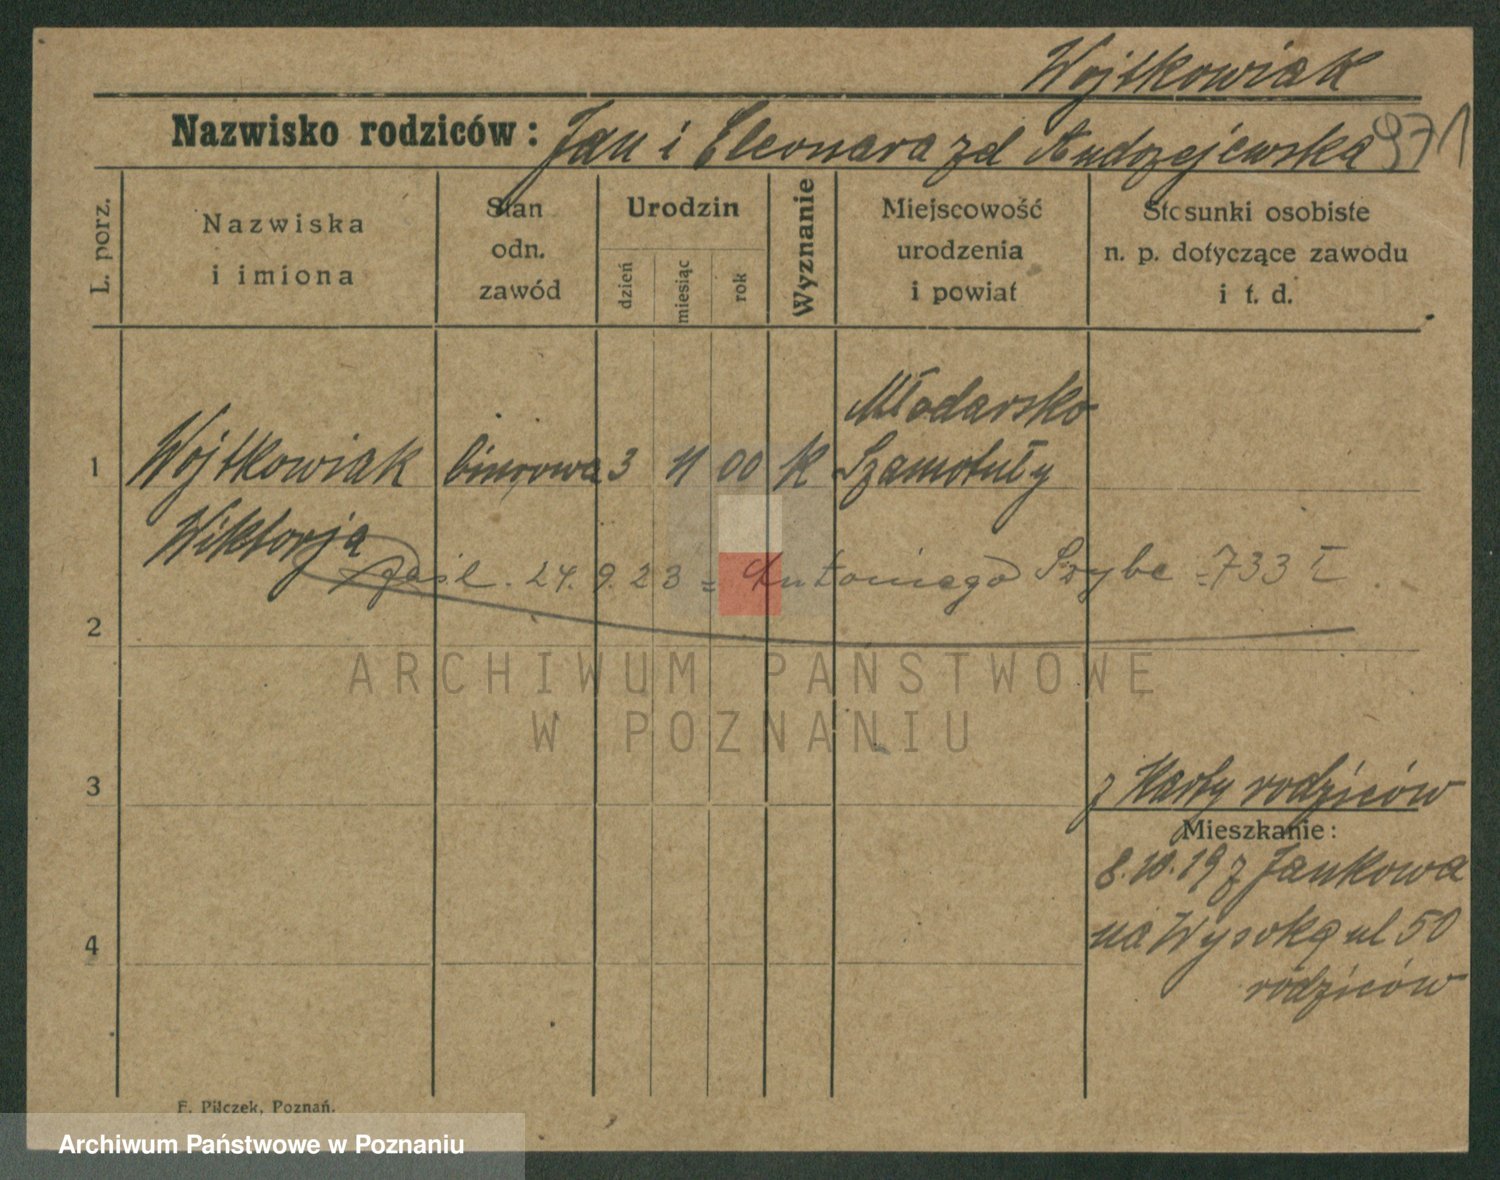 Wojtkowiak
Nazwisko rodziców: Jan i Eleonara zd Andrzejewska 971
L. porz.
Nazwiska
i imiona
Stan
odn.
zawód
Urodzin
dzień
miesiąc
rok
Wyznanie
Miejscowość
urodzenia
i powiat
Stosunki osobiste
n. p. dotyczące zawodu
i t. d.
Młodarsko
1 Wojtkowiak biurowa 3 11 00 K Szamotuły
Wiktorja
zaśl. 24.9.23 = Antoniego Szybe = 733 I.
2
ARCHIWUM PAŃSTWOWE
W POZNANIU
3
z Karty rodziców
Mieszkanie:
8.10.19 z Jankowa
4
na Wysoką ul 50
rodziców
F. Pilczek, Poznań.
Archiwum Państwowe w Poznaniu